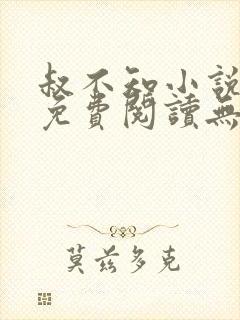 叔不知小說
免費閱讀無
莫茲多克